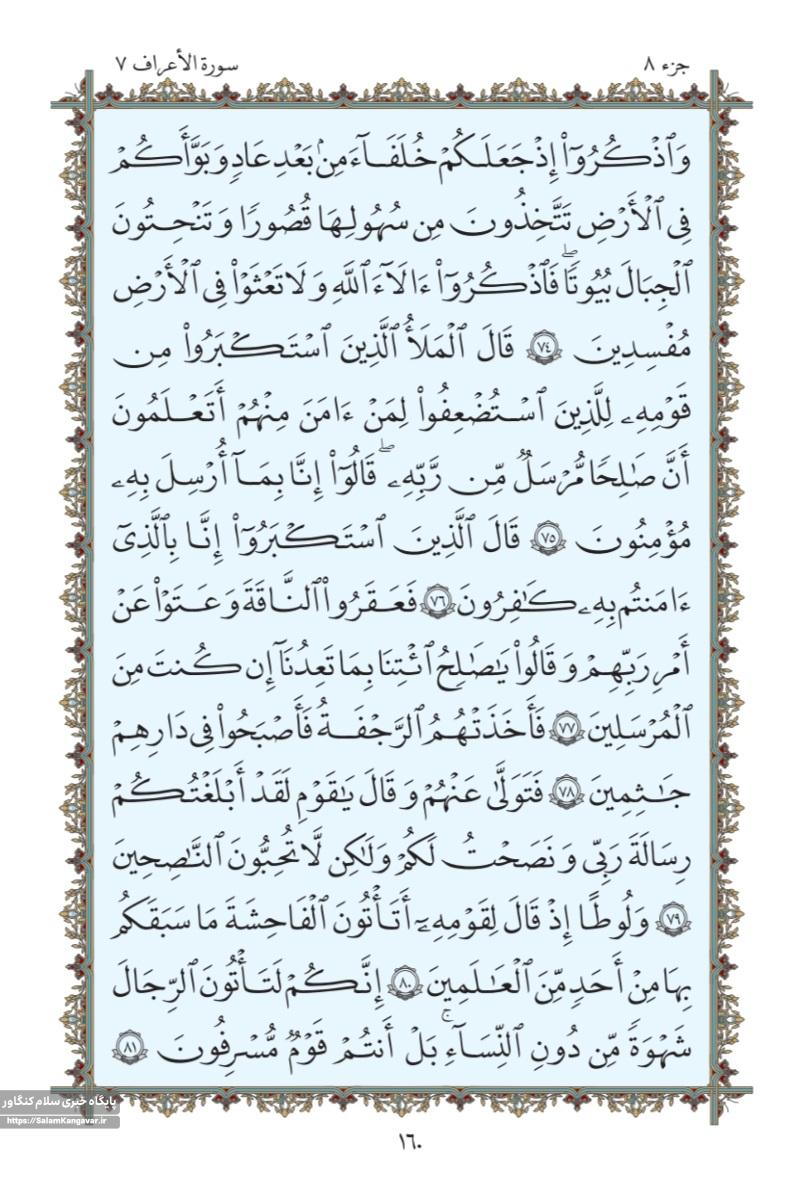 جزء ٨
سورة الأعراف ٧
وَٱذْكُرُوٓا۟ إِذْ جَعَلَكُمْ خُلَفَآءَ مِنۢ بَعْدِ عَادٍ وَبَوَّأَكُمْ
فِى ٱلْأَرْضِ تَتَّخِذُونَ مِن سُهُولِهَا قُصُورًا وَتَنْحِتُونَ
ٱلْجِبَالَ بُيُوتًا ۖ فَٱذْكُرُوٓا۟ ءَالَآءَ ٱللَّهِ وَلَا تَعْثَوْا۟ فِى ٱلْأَرْضِ
مُفْسِدِينَ ٧٤ قَالَ ٱلْمَلَأُ ٱلَّذِينَ ٱسْتَكْبَرُوا۟ مِن
قَوْمِهِۦ لِلَّذِينَ ٱسْتُضْعِفُوا۟ لِمَنْ ءَامَنَ مِنْهُمْ أَتَعْلَمُونَ
أَنَّ صَٰلِحًا مُّرْسَلٌ مِّن رَّبِّهِۦ ۖ قَالُوٓا۟ إِنَّا بِمَآ أُرْسِلَ بِهِۦ
مُؤْمِنُونَ ٧٥ قَالَ ٱلَّذِينَ ٱسْتَكْبَرُوٓا۟ إِنَّا بِٱلَّذِىٓ
ءَامَنتُم بِهِۦ كَٰفِرُونَ ٧٦ فَعَقَرُوا۟ ٱلنَّاقَةَ وَعَتَوْا۟ عَنْ
أَمْرِ رَبِّهِمْ وَقَالُوا۟ يَٰصَٰلِحُ ٱئْتِنَا بِمَا تَعِدُنَآ إِن كُنتَ مِنَ
ٱلْمُرْسَلِينَ ٧٧ فَأَخَذَتْهُمُ ٱلرَّجْفَةُ فَأَصْبَحُوا۟ فِى دَارِهِمْ
جَٰثِمِينَ ٧٨ فَتَوَلَّىٰ عَنْهُمْ وَقَالَ يَٰقَوْمِ لَقَدْ أَبْلَغْتُكُمْ
رِسَالَةَ رَبِّى وَنَصَحْتُ لَكُمْ وَلَٰكِن لَّا تُحِبُّونَ ٱلنَّٰصِحِينَ
٧٩ وَلُوطًا إِذْ قَالَ لِقَوْمِهِۦٓ أَتَأْتُونَ ٱلْفَٰحِشَةَ مَا سَبَقَكُم
بِهَا مِنْ أَحَدٍ مِّنَ ٱلْعَٰلَمِينَ ٨٠ إِنَّكُمْ لَتَأْتُونَ ٱلرِّجَالَ
شَهْوَةً مِّن دُونِ ٱلنِّسَآءِ ۚ بَلْ أَنتُمْ قَوْمٌ مُّسْرِفُونَ ٨١
پایگاه خبری سلام کنگاور
https://SalamKangavar.ir
١٦٠